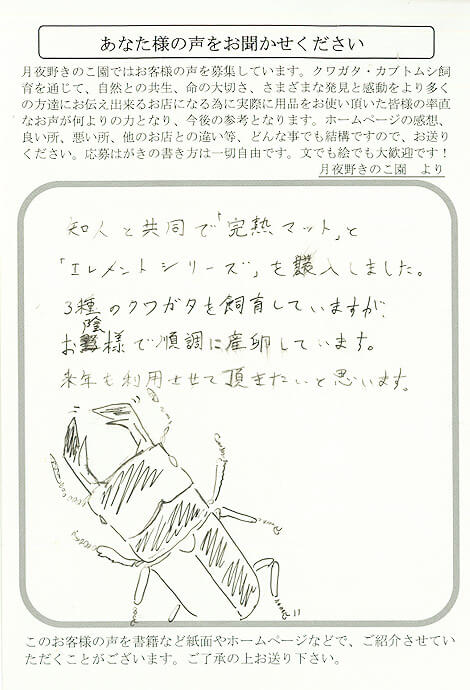 あなた様の声をお聞かせください
月夜野きのこ園ではお客様の声を募集しています。クワガタ・カブトムシ飼
育を通じて、自然との共生、命の大切さ、さまざまな発見と感動をより多く
の方達にお伝え出来るお店になる為に実際に用品をお使い頂いた皆様の率直
なお声が何よりの力となり、今後の参考となります。ホームページの感想、
良い所、悪い所、他のお店との違い等、どんな事でも結構ですので、お送り
ください。応募はがきの書き方は一切自由です。文でも絵でも大歓迎です！
月夜野きのこ園　より
知人と共同で「完熟マット」と
「エレメントシリーズ」を購入しました。
3種のクワガタを飼育していますが、
お陰様で順調に産卵しています。
来年も利用させて頂きたいと思います。
このお客様の声を書籍など紙面やホームページなどで、ご紹介させてい
ただくことがございます。ご了承の上お送り下さい。